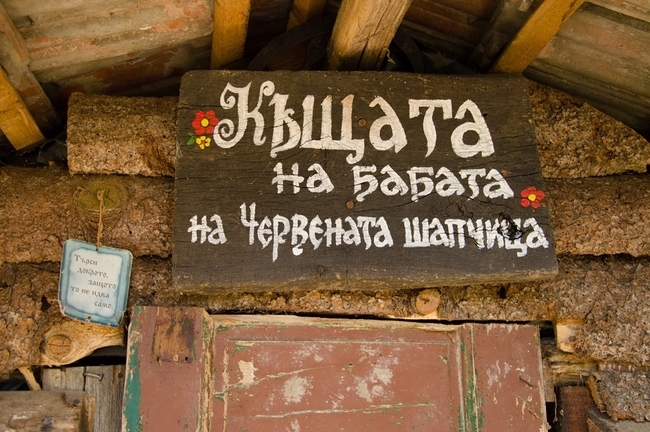 Къщата
на бабата
на Червената шапчица
Търси
доброто,
защото
то не идва
само.